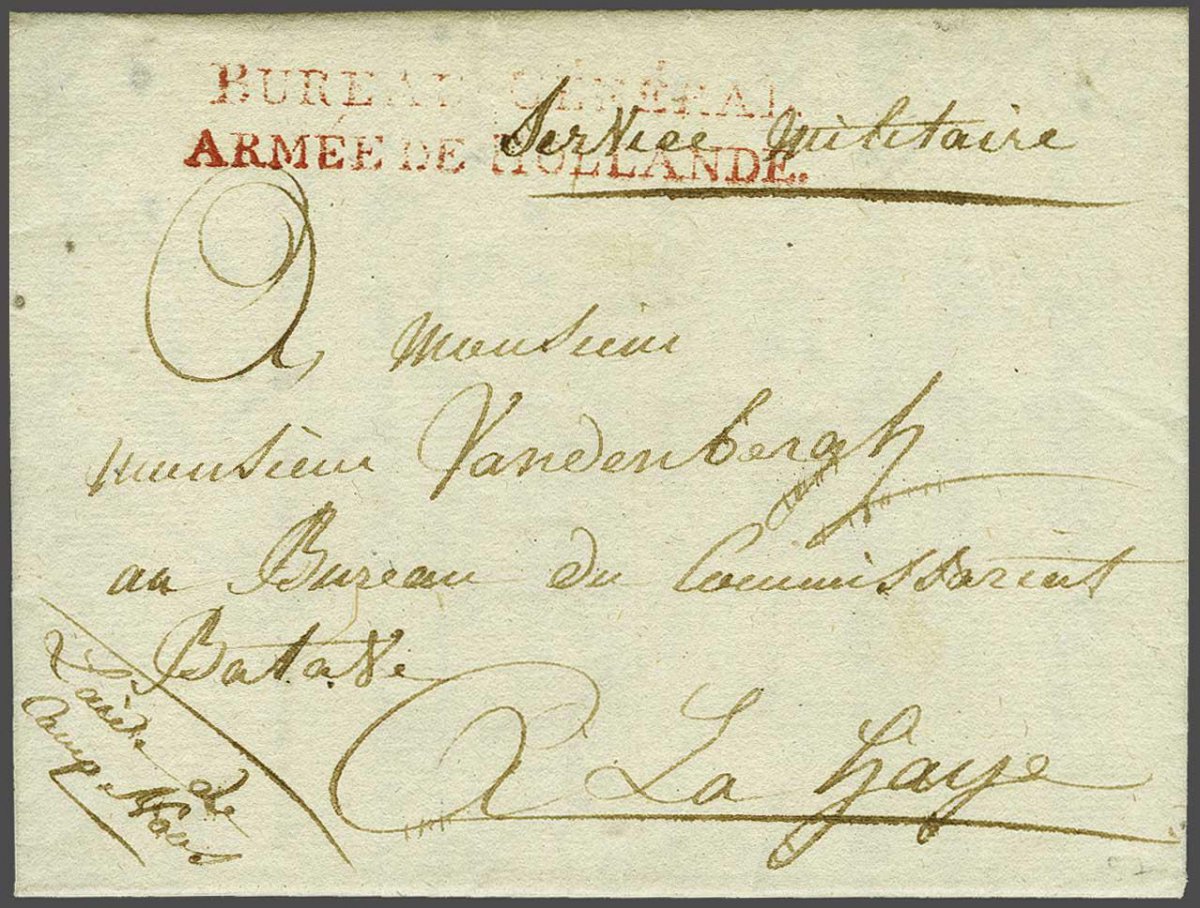 BUREAU GÉNÉRAL
ARMÉE DE HOLLANDE.
Service Militaire
A Monsieur
monsieur Vandenbergh
au Bureau du Commissariat
Batave
A La haye
de
Camp